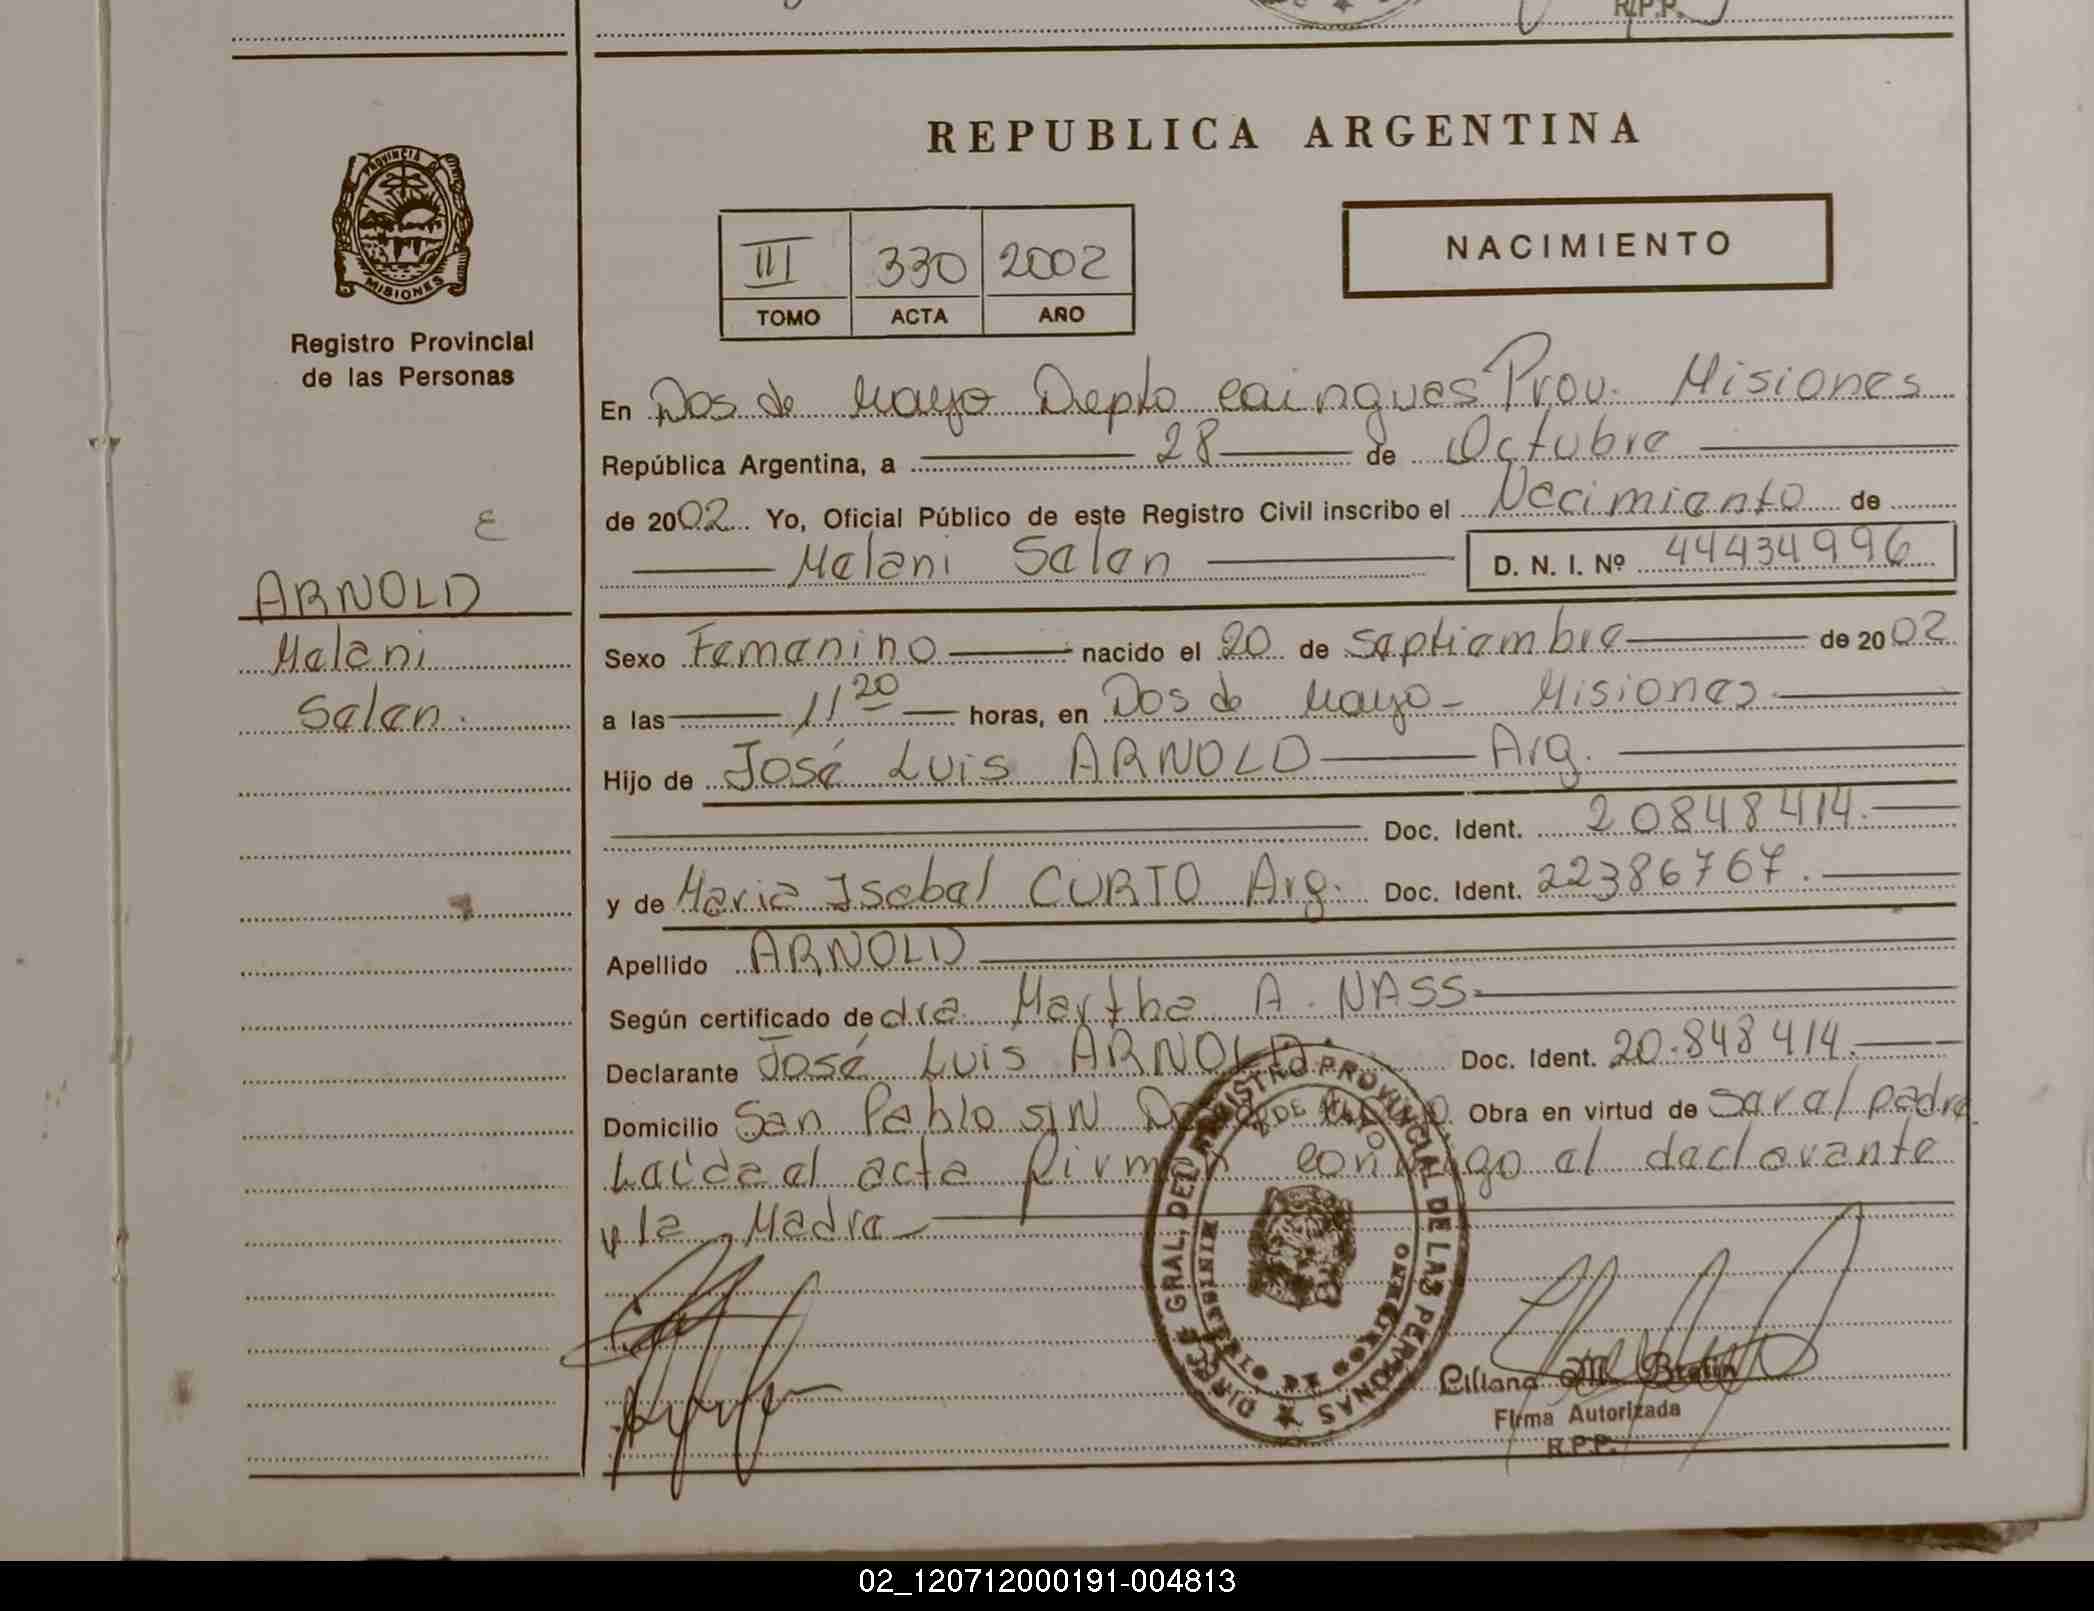 R.P.P.
REPUBLICA ARGENTINA
PROVINCIA DE
MISIONES
Registro Provincial
de las Personas
III 330 2002
TOMO ACTA AÑO
NACIMIENTO
En Dos de Mayo Depto Cainguas Prov. Misiones
República Argentina, a 28 de Octubre
de 2002 Yo, Oficial Público de este Registro Civil inscribo el Nacimiento de
Melani Selen D. N. I. Nº 44434996
E
ARNOLD
Melani
Selen.
Sexo Femenino nacido el 20 de Septiembre de 2002
a las 11 20 horas, en Dos de Mayo - Misiones
Hijo de José Luis ARNOLD Arg.
Doc. Ident. 20848414.
y de Maria Isabel CURTO Arg. Doc. Ident. 22386767.
Apellido ARNOLD
Según certificado de dra. Martha A. NASS
Declarante José Luis ARNOLD. Doc. Ident. 20.848414.
Domicilio San Pablo S/N Obra en virtud de Ser el padre
Leída el acta firman conmigo el declarante
y la Madre
DIREC. GRAL. DEL REGISTRO PROVINCIAL DE LAS PERSONAS
2 DE MAYO
MINISTERIO DE GOBIERNO
Liliana M.
Firma Autorizada
R.P.P.
02_120712000191-004813